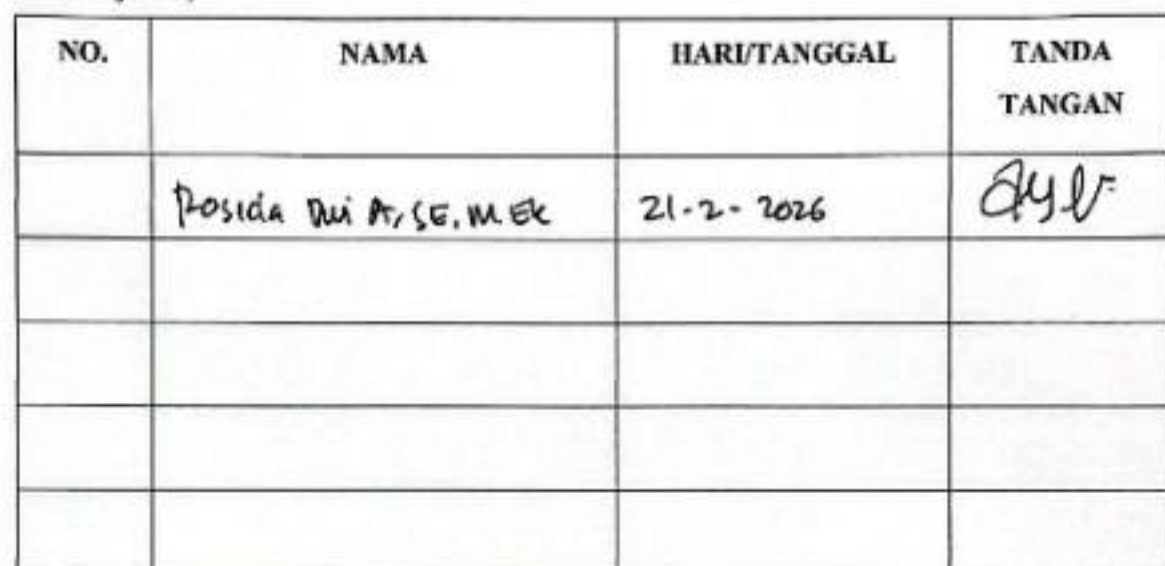 NO. NAMA HARI/TANGGAL TANDA TANGAN
Rosida Dwi A, SE, M.EK 21-2-2026